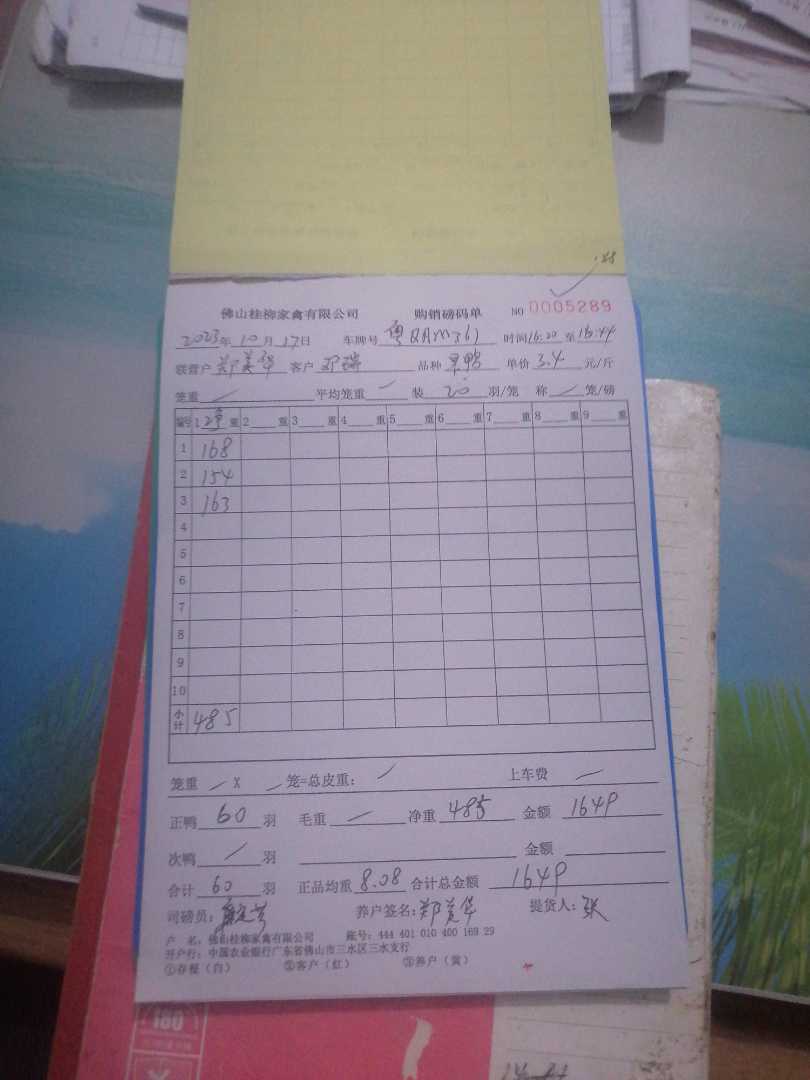 佛山桂柳家禽有限公司 购销磅码单 NO 0005289
2023年 10月 17日 车牌号 粤QAM361 时间16:20至16:44
联营户 郑美华 客户 邓瑞 品种 旱鸭 单价 3.4 元/斤
笼重 / 平均笼重 / 装 20 羽/笼 称 / 笼/磅
编号 1 净 重 2 重 3 重 4 重 5 重 6 重 7 重 8 重 9 重
1 168
2 154
3 163
4
5
6
7
8
9
10
小计 485
笼重 / X / 笼=总皮重: / 上车费 /
正鸭 60 羽 毛重 / 净重 485 金额 1649
次鸭 / 羽 金额
合计 60 羽 正品均重 8.08 合计总金额 1649
司磅员: 养户签名: 郑美华 提货人: 张
户 名: 佛山桂柳家禽有限公司 账号: 444 401 010 400 169 29
开户行: 中国农业银行广东省佛山市三水区三水支行
①存根(白) ②客户(红) ③养户(黄)
180